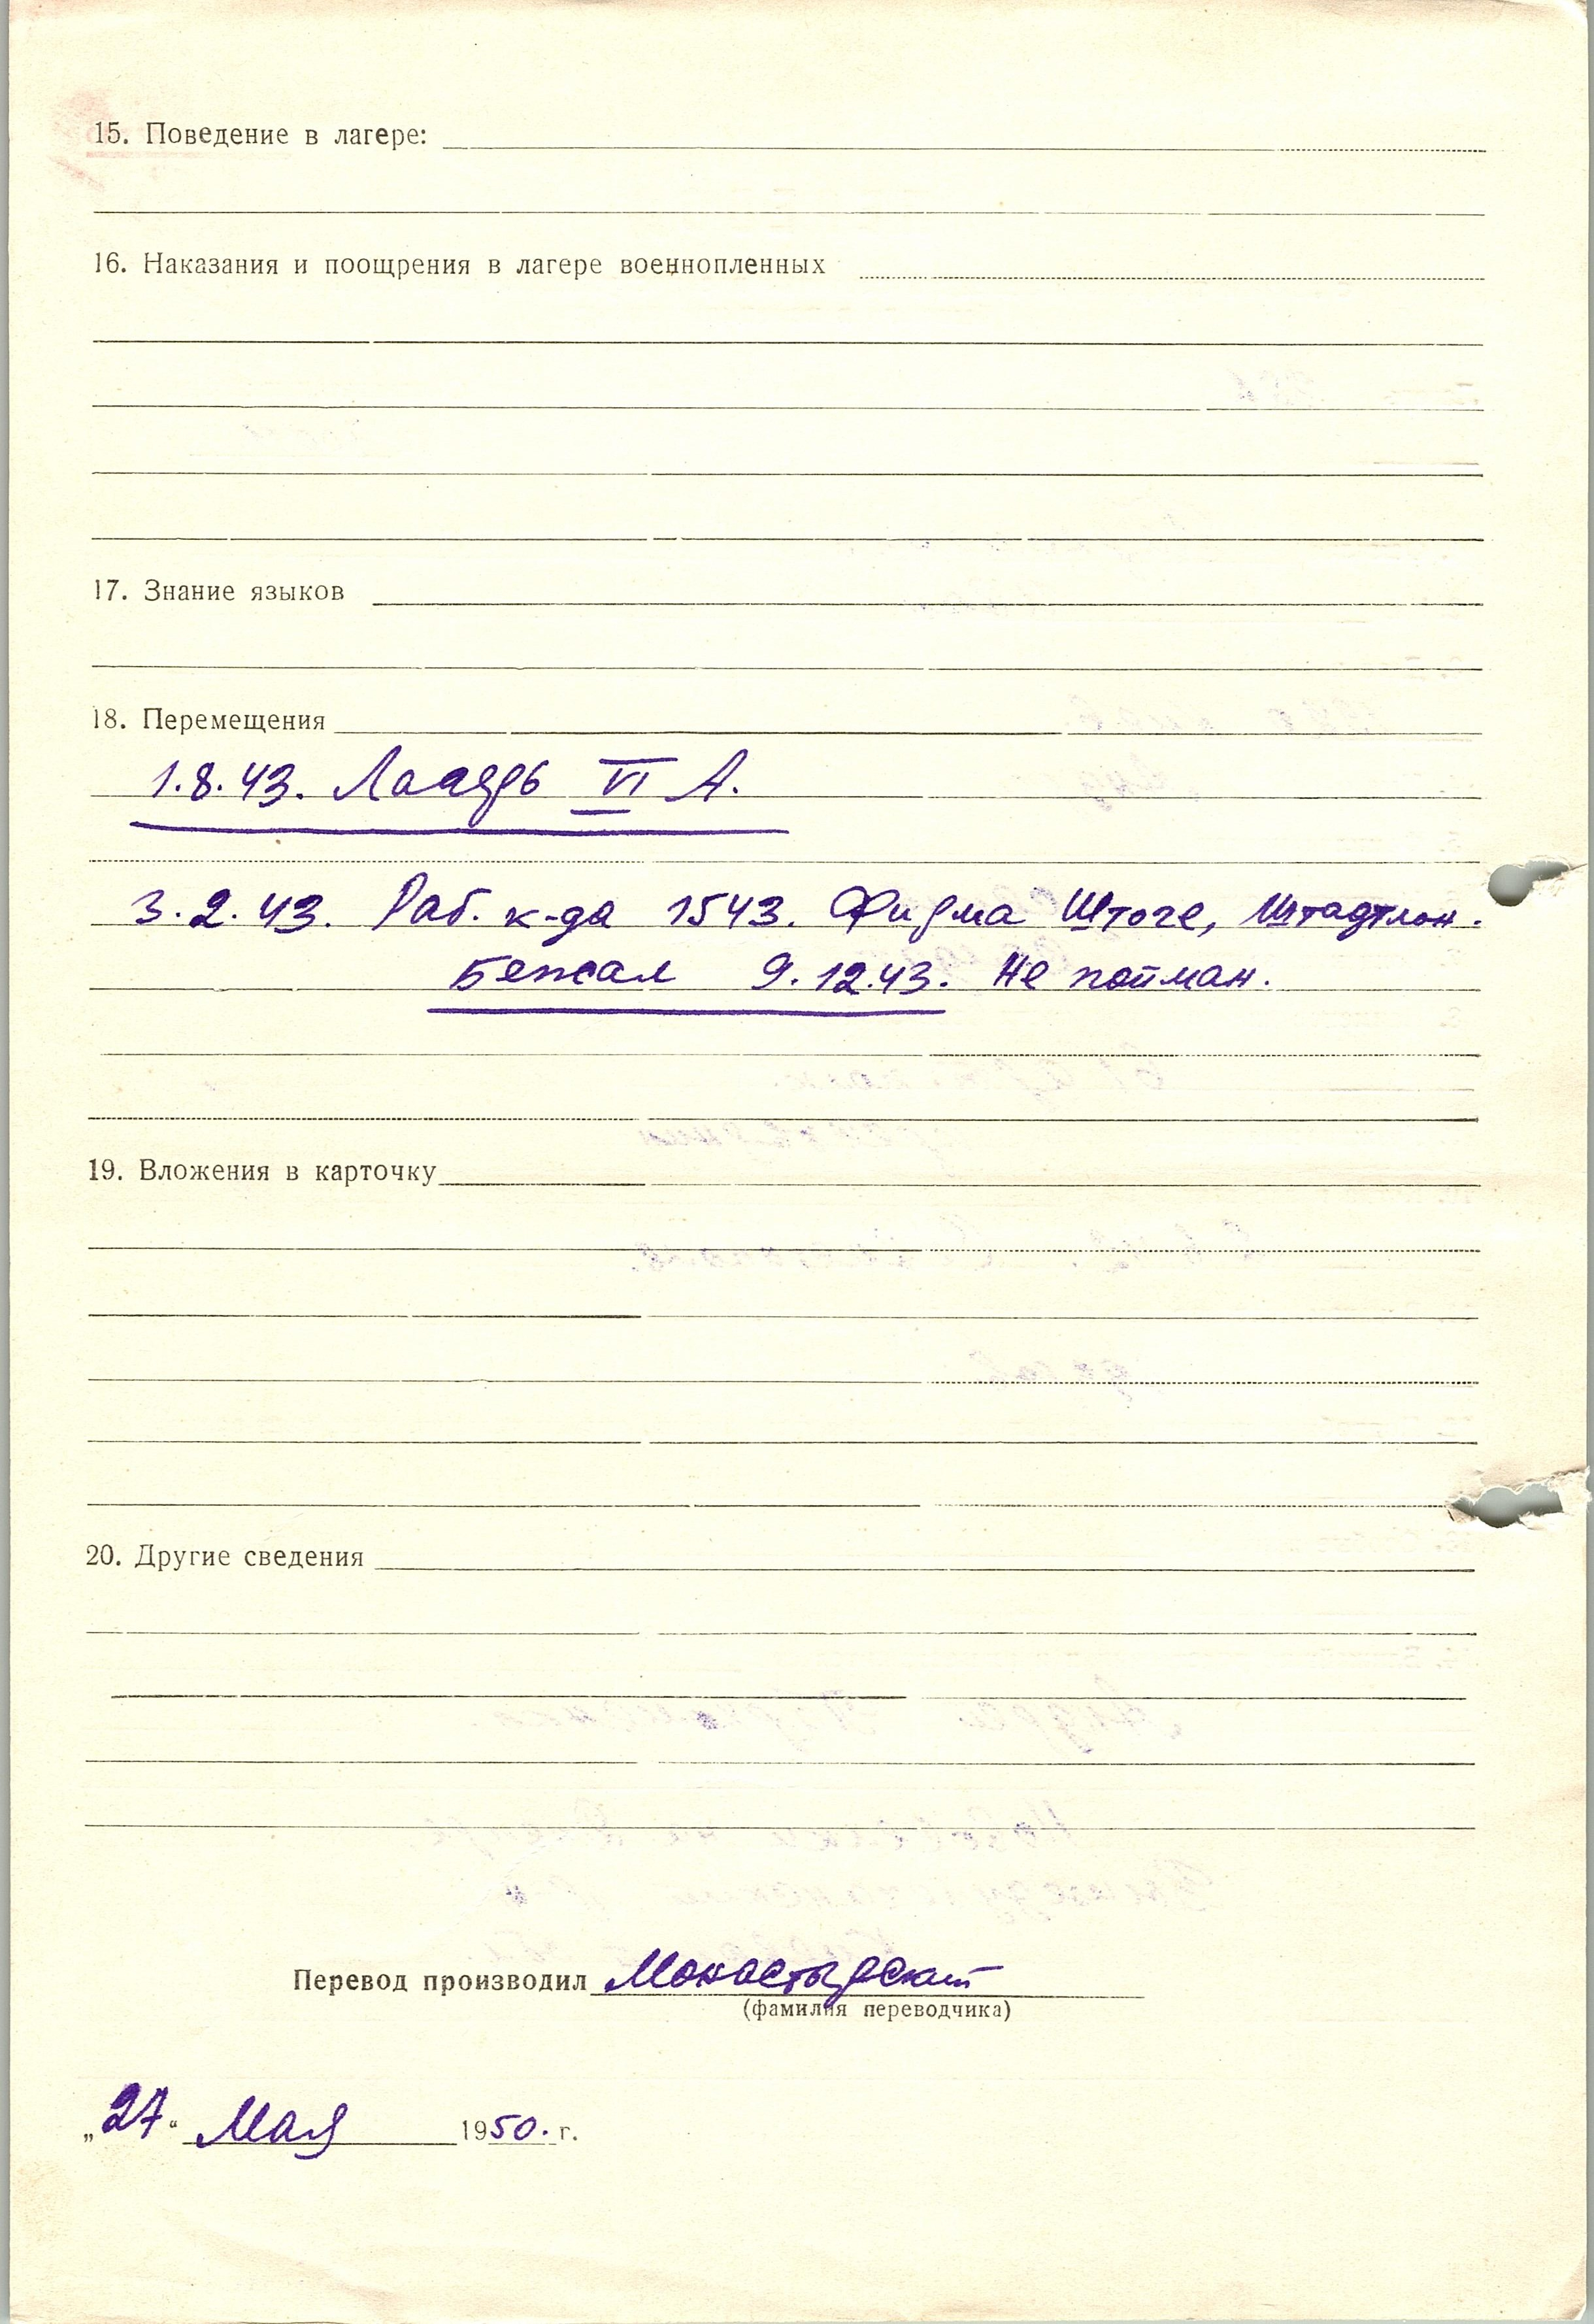 15. Поведение в лагере:
16. Наказания и поощрения в лагере военнопленных
17. Знание языков
18. Перемещения
1.8.43. Лагерь VI А.
3.2.43. Раб. к-да 1543. Фирма Штоге, Штадтлон.
Бежал 9.12.43. Не пойман.
19. Вложения в карточку
20. Другие сведения
Перевод производил Монастырский
(фамилия переводчика)
„27“ Мая 1950. г.